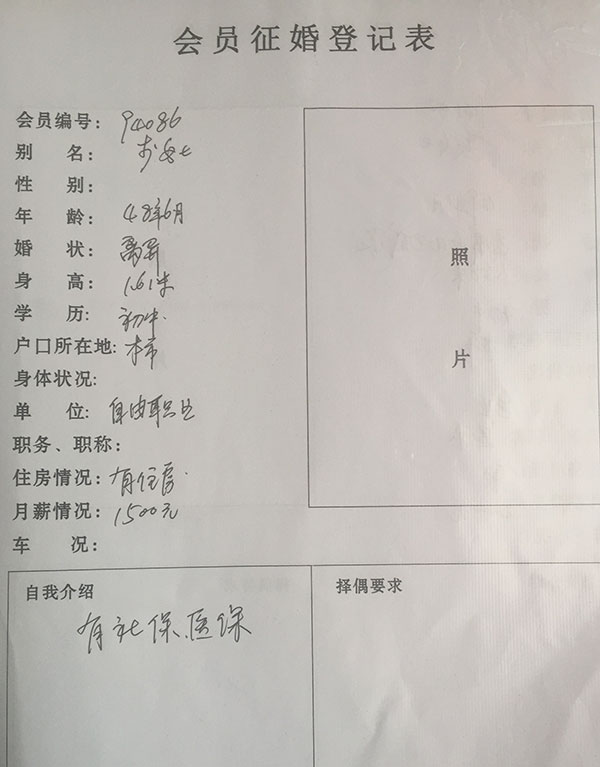 会员征婚登记表
会员编号: 94086
别 名: 女士
性 别:
年 龄: 48年6月
婚 状: 离异
身 高: 1.61米
学 历: 初中
户口所在地: 本市
身体状况:
单 位: 自由职业
职务、职称:
住房情况: 有住房
月薪情况: 1500元
车 况:
照
片
自我介绍
有社保.医保
择偶要求